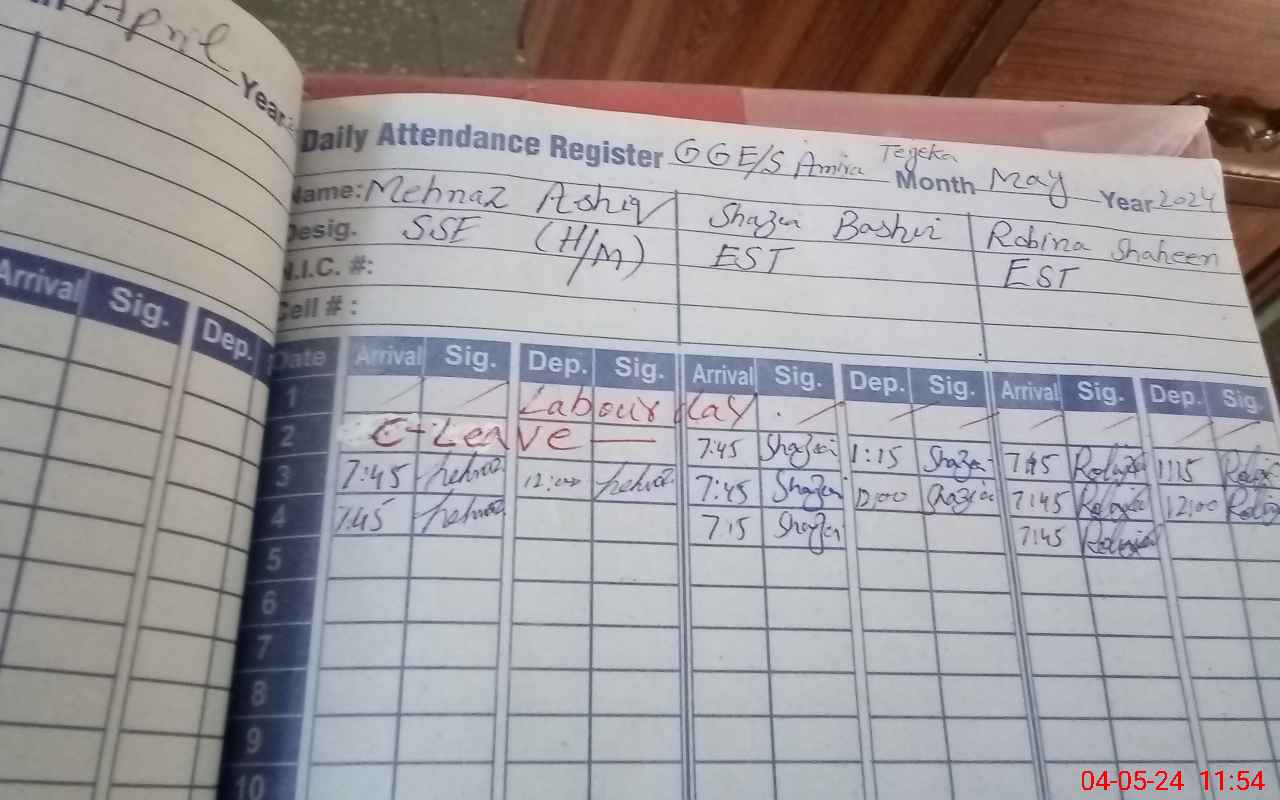 April
Year
Arrival Sig. Dep.
Daily Attendance Register GGE/S Amira Tegeka Month May Year 2024
Name: Mehnaz Ashiq Shazia Bashir Robina Shaheen
Desig. SSE (H/M) EST EST
N.I.C. #:
Cell # :
Date Arrival Sig. Dep. Sig. Arrival Sig. Dep. Sig. Arrival Sig. Dep. Sig.
1 Labour day
2 C-Leave 7:45 1:15 7:45 1:15
3 7:45 12:00 7:45 12:00 7:45 12:00
4 7:45 7:15 7:45
5
6
7
8
9
10
04-05-24 11:54